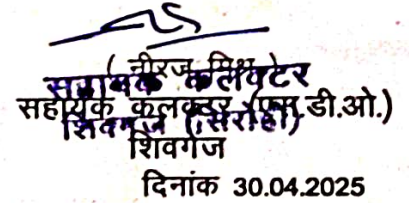 ( नीरज मिश्र
सहायक कलक्टर
सहायक कलक्टर (एस.डी.ओ.)
शिवगंज (सिरोही)
शिवगंज
दिनांक 30.04.2025